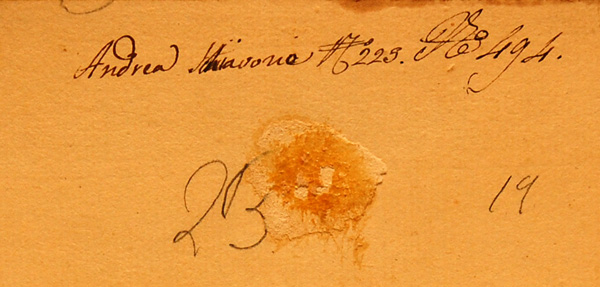 Andrea Skiavone N° 223. N° 494.
23 19